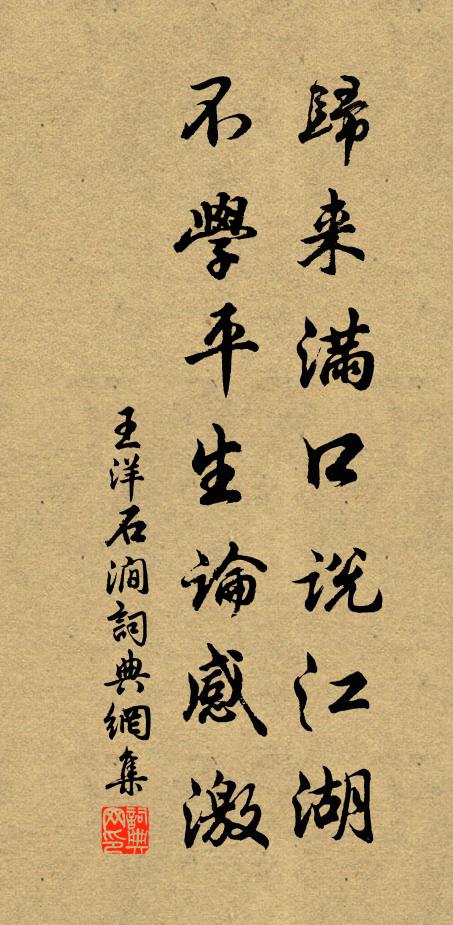 歸来滿口說江湖
不學平生論感激
王洋石澗詞典網集
詞典網印